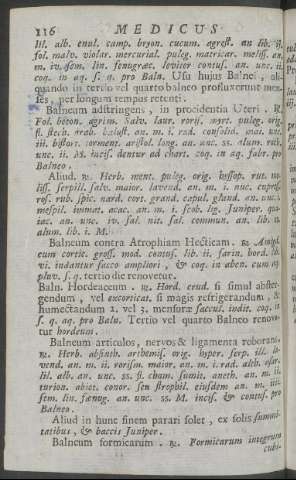 116 MEDICUS
lil. alb. enul. camp. bryon. cucum. agrest. an lib.
fol. malv. violar. mercurial. puleg. matricar. meliss. an.
m. iv. sem. lin. fenugræc. leviter contus. an. unc. ii.
coq. in aq. s. q. pro Baln. Usu hujus Balnei, ali-
quando in tertio vel quarto balneo profluxerunt men-
ses, per longum tempus retenti.
Balneum adstringens, in procidentia Uteri. ℞.
Fol. beton. agrim. Salv. laur. rorism. myrt. puleg. orig.
fl. stech. arab. balaust. an. m. i. rad. consolid. mai. unc.
iii. bistort. torment. aristol. long. an. unc. ss. alum. rub.
unc. ii. M. incis. dentur ad chart. coq. in aq. fabr. pro
Balneo.
Aliud. ℞. Herb. ment. puleg. orig. hyssop. rut. me-
liss. serpill. salv. maior. lavend. an. m. i. nuc. cupress.
ros. rub. spic. nard. cort. granat. capul. gland. an. unc. i.
mespil. immat. acac. an. m. i. scob. lig. Juniper. gua-
iac. an. unc. iv. sal. nit. sal. commun. an. lib. ii.
alum. lib. i. M.
Balneum contra Atrophiam Hecticam. ℞ Amygd.
cum cortic. gross. mod. contus. lib. ii. farin. hord. lib.
vi. indantur sacco ampliori, & coq. in aben. cum aq.
pluv. s. q. tertio die renovetur.
Baln. Hordeaceum. ℞. Hord. crud. si simul abster-
gendum, vel excorticat. si magis refrigerandum, &
humectandum 2. vel 3. mensuræ saccul. indit. coq. in
s. q. aq. pro Balu. Tertio vel quarto Balneo renove-
tur hordeum.
Balneum articulos, nervos & ligamenta roborans.
℞. Herb. absinth. arthemis. orig. hyper. serp. ill. la-
vend. an. m. ii. rorism. maior. an. m. i. rad. alth. asar.
lil. alb. an. unc. ss. fl. cham. sumit. aneth. an. m. ii.
turion. abiet. conor. seu strophil. eiusdem an. m. iii.
sem. lin. fænug. an. unc. ss. M. incis. & contus. pro
Balneo.
Aliud in hunc finem parari solet, ex solis summi-
tatibus, & baccis Juniper.
Balneum formicarum. ℞. Formicarum integrum
cubi-